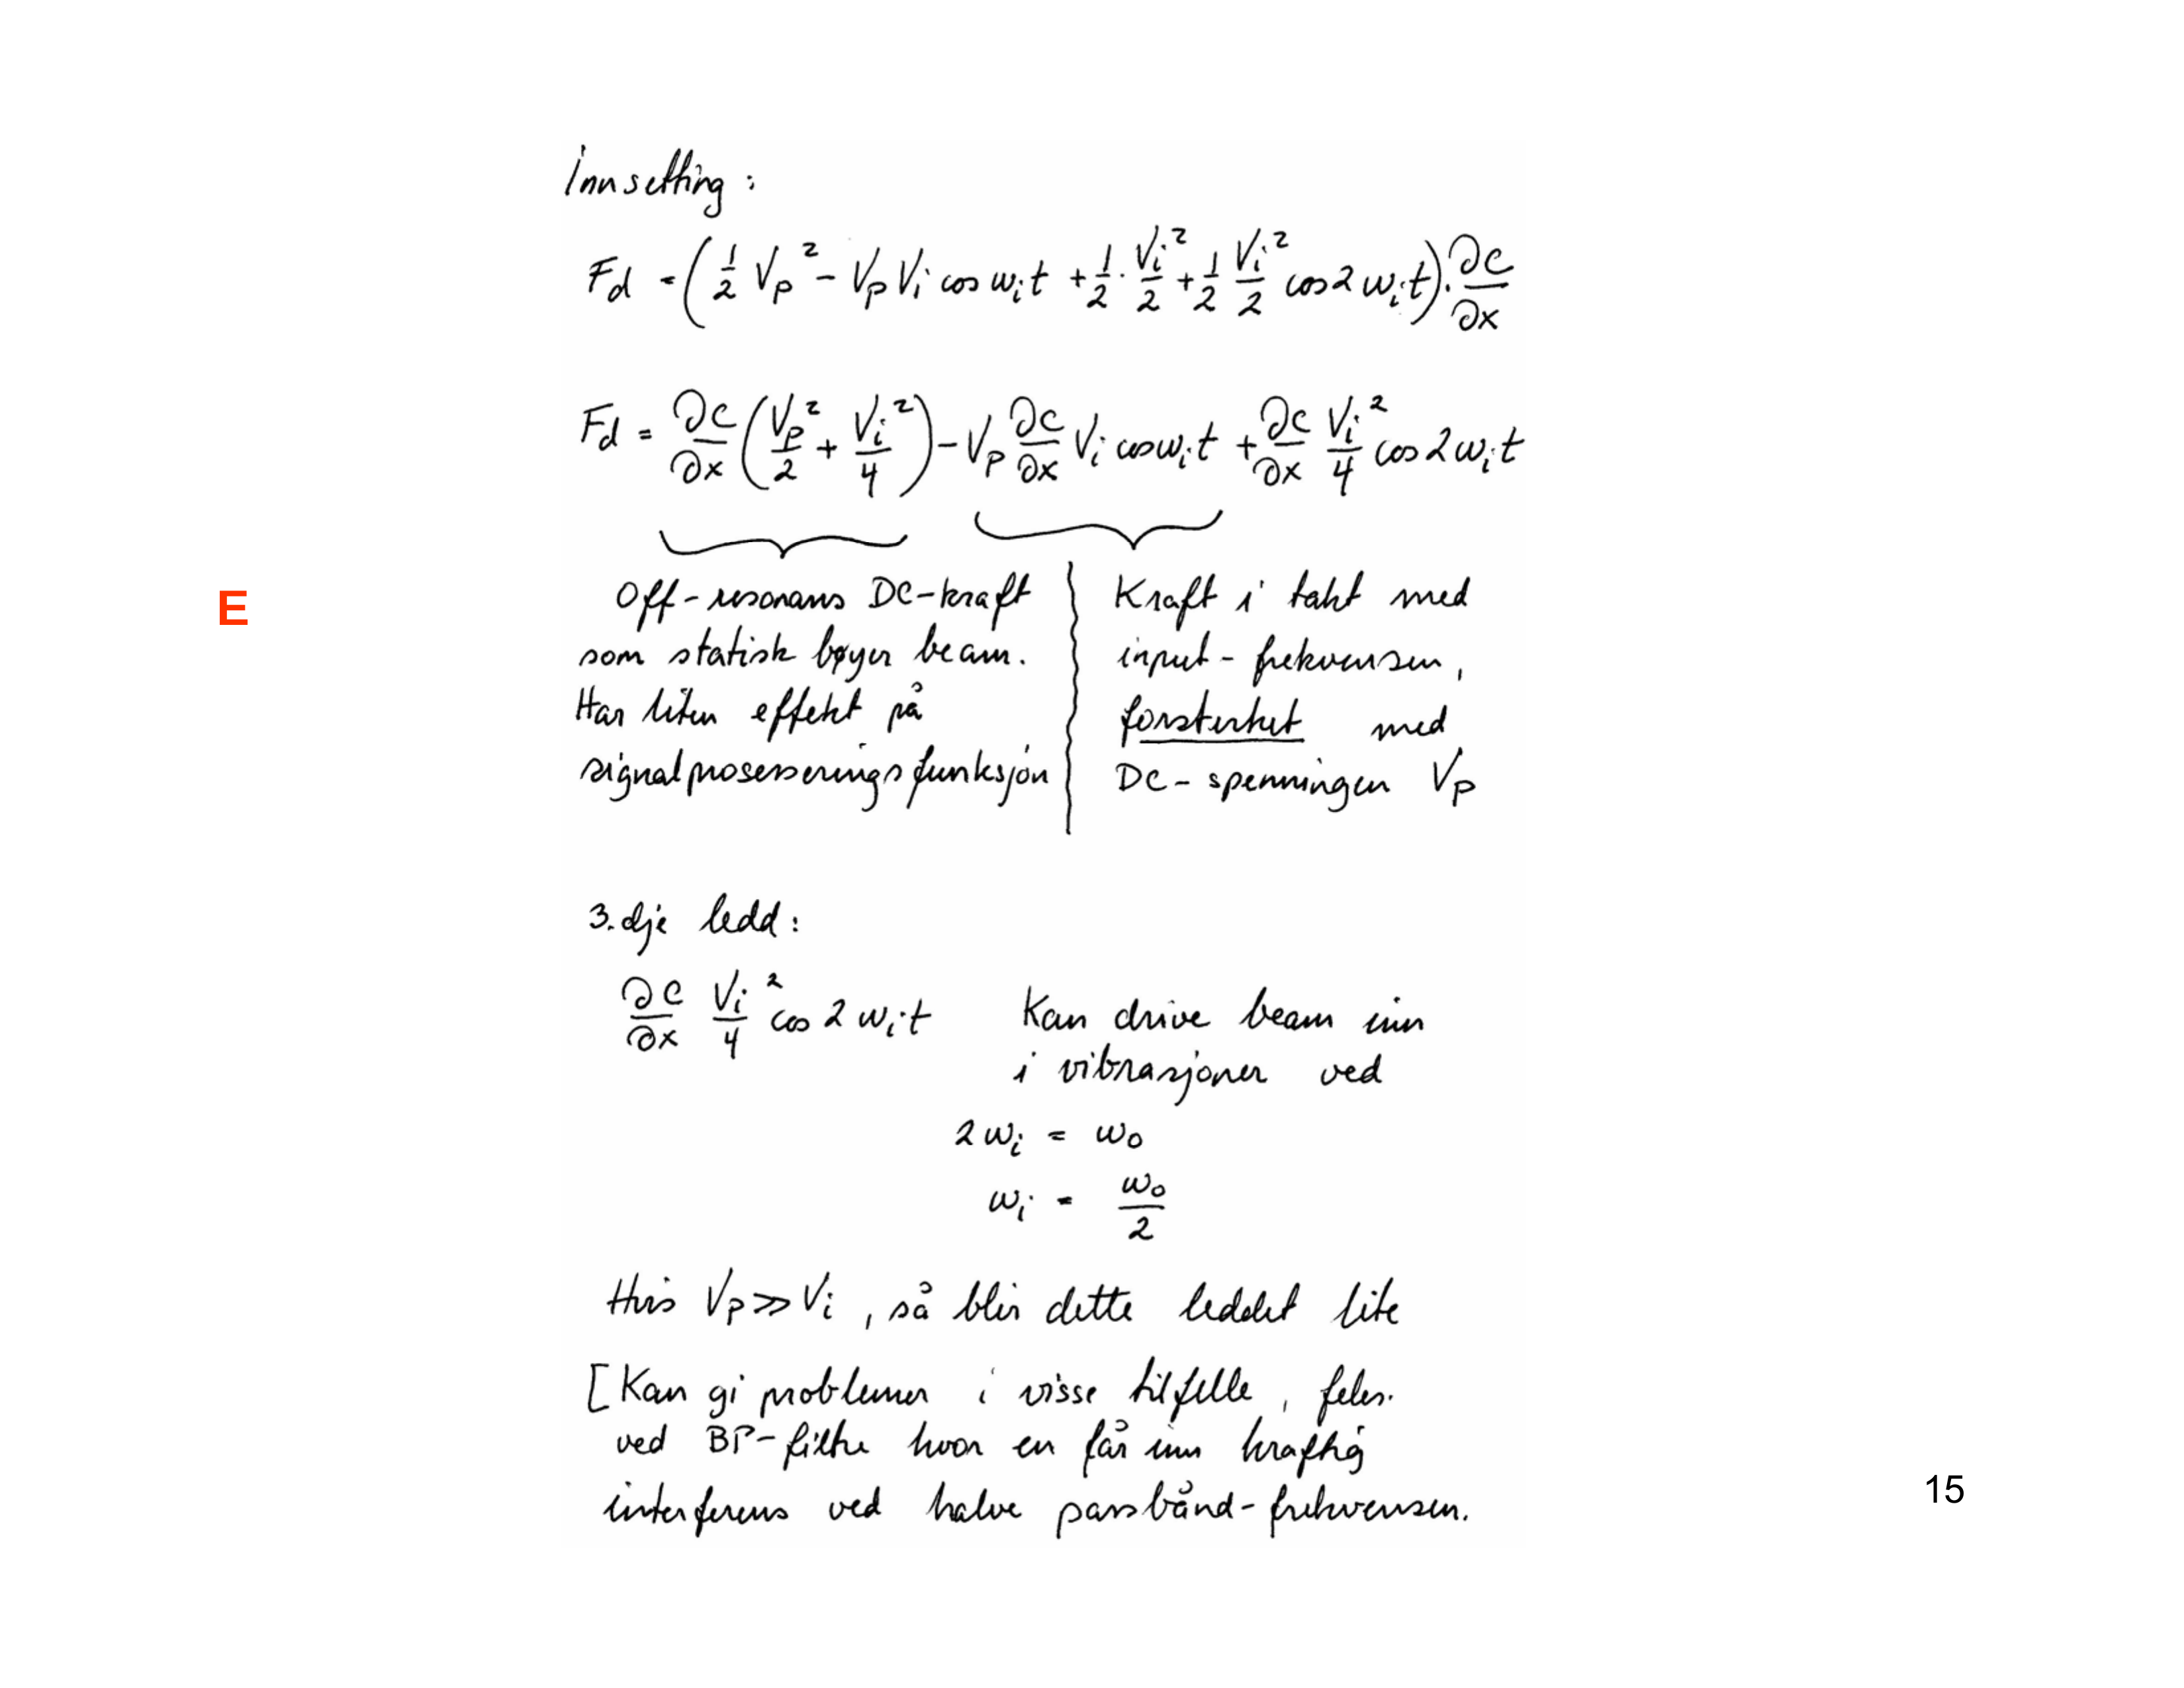 Innsetting:
F_d = (1/2 V_p² − V_p V_i cos ω_i t + 1/2 · V_i²/2 + 1/2 V_i²/2 cos 2ω_i t) · ∂C/∂x
F_d = ∂C/∂x (V_p²/2 + V_i²/4) − V_p ∂C/∂x V_i cos ω_i t + ∂C/∂x V_i²/4 cos 2ω_i t
E
Off-resonans DC-kraft
som statisk bøyer beam.
Har liten effekt på
signalprosesseringsfunksjon
Kraft i takt med
input-frekvensen,
forsterket med
DC-spenningen V_p
3.dje ledd:
∂C/∂x V_i²/4 cos 2ω_i t Kan drive beam inn
i vibrasjoner ved
2ω_i = ω_o
ω_i = ω_o/2
Hvis V_p >> V_i, så blir dette leddet lite
[Kan gi problemer i visse tilfelle, f.eks.
ved BP-filtre hvor en får inn kraftig
interferens ved halve passbånd-frekvensen.
15